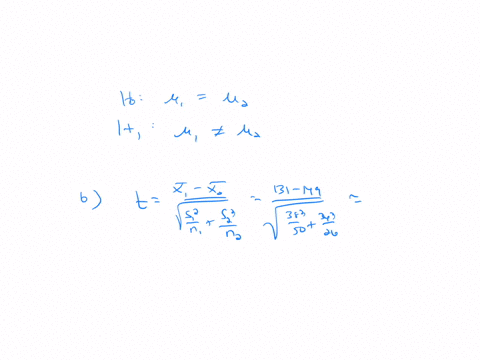 H0: μ₁ = μ₂
H₁: μ₁ ≠ μ₂
b) t = (x̄₁ - x̄₂) / √(s₁²/n₁ + s₂³/n₂) = (131-149) / √(38³/50 + /26) ≈